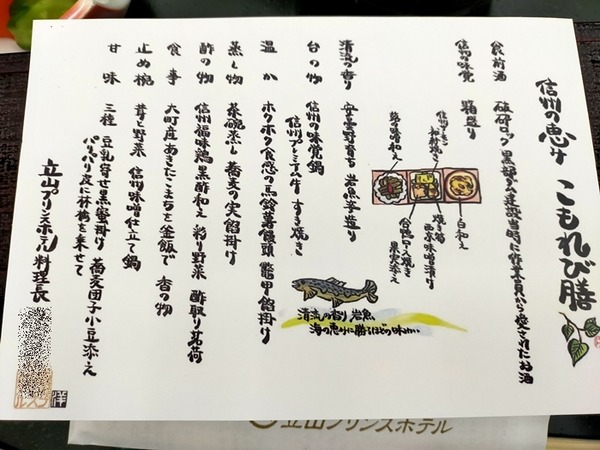 信州の恵み こもれび膳
食前酒 破砕ロック 黒部ダム建設当時に作業員から愛されたお酒
信州の味覚 箱盛り
白和え
信州サーモン
焼き
西京味噌漬け
果実添え
清流の香り 安曇野育ち 岩魚姿造り
清流の香り 岩魚
海の恵みに勝るほどの味わい
台の物 信州の味覚鍋
信州プレミアム牛 すき焼き
温か ホクホク食感の馬鈴薯饅頭 鼈甲餡掛け
蒸し物 茶碗蒸し 蕎麦の実餡掛け
酢の物 信州福味鶏黒酢和え 彩り野菜 酢取り茗荷
食事 大町産あきたこまちを釜飯で 香の物
止め椀 茸と野菜 信州味噌仕立て鍋
甘味 三種 豆乳寄せ黒蜜掛け 蕎麦団子小豆添え
パリパリ皮に林檎を乗せて
立山プリンスホテル料理長
立山プリンスホテル